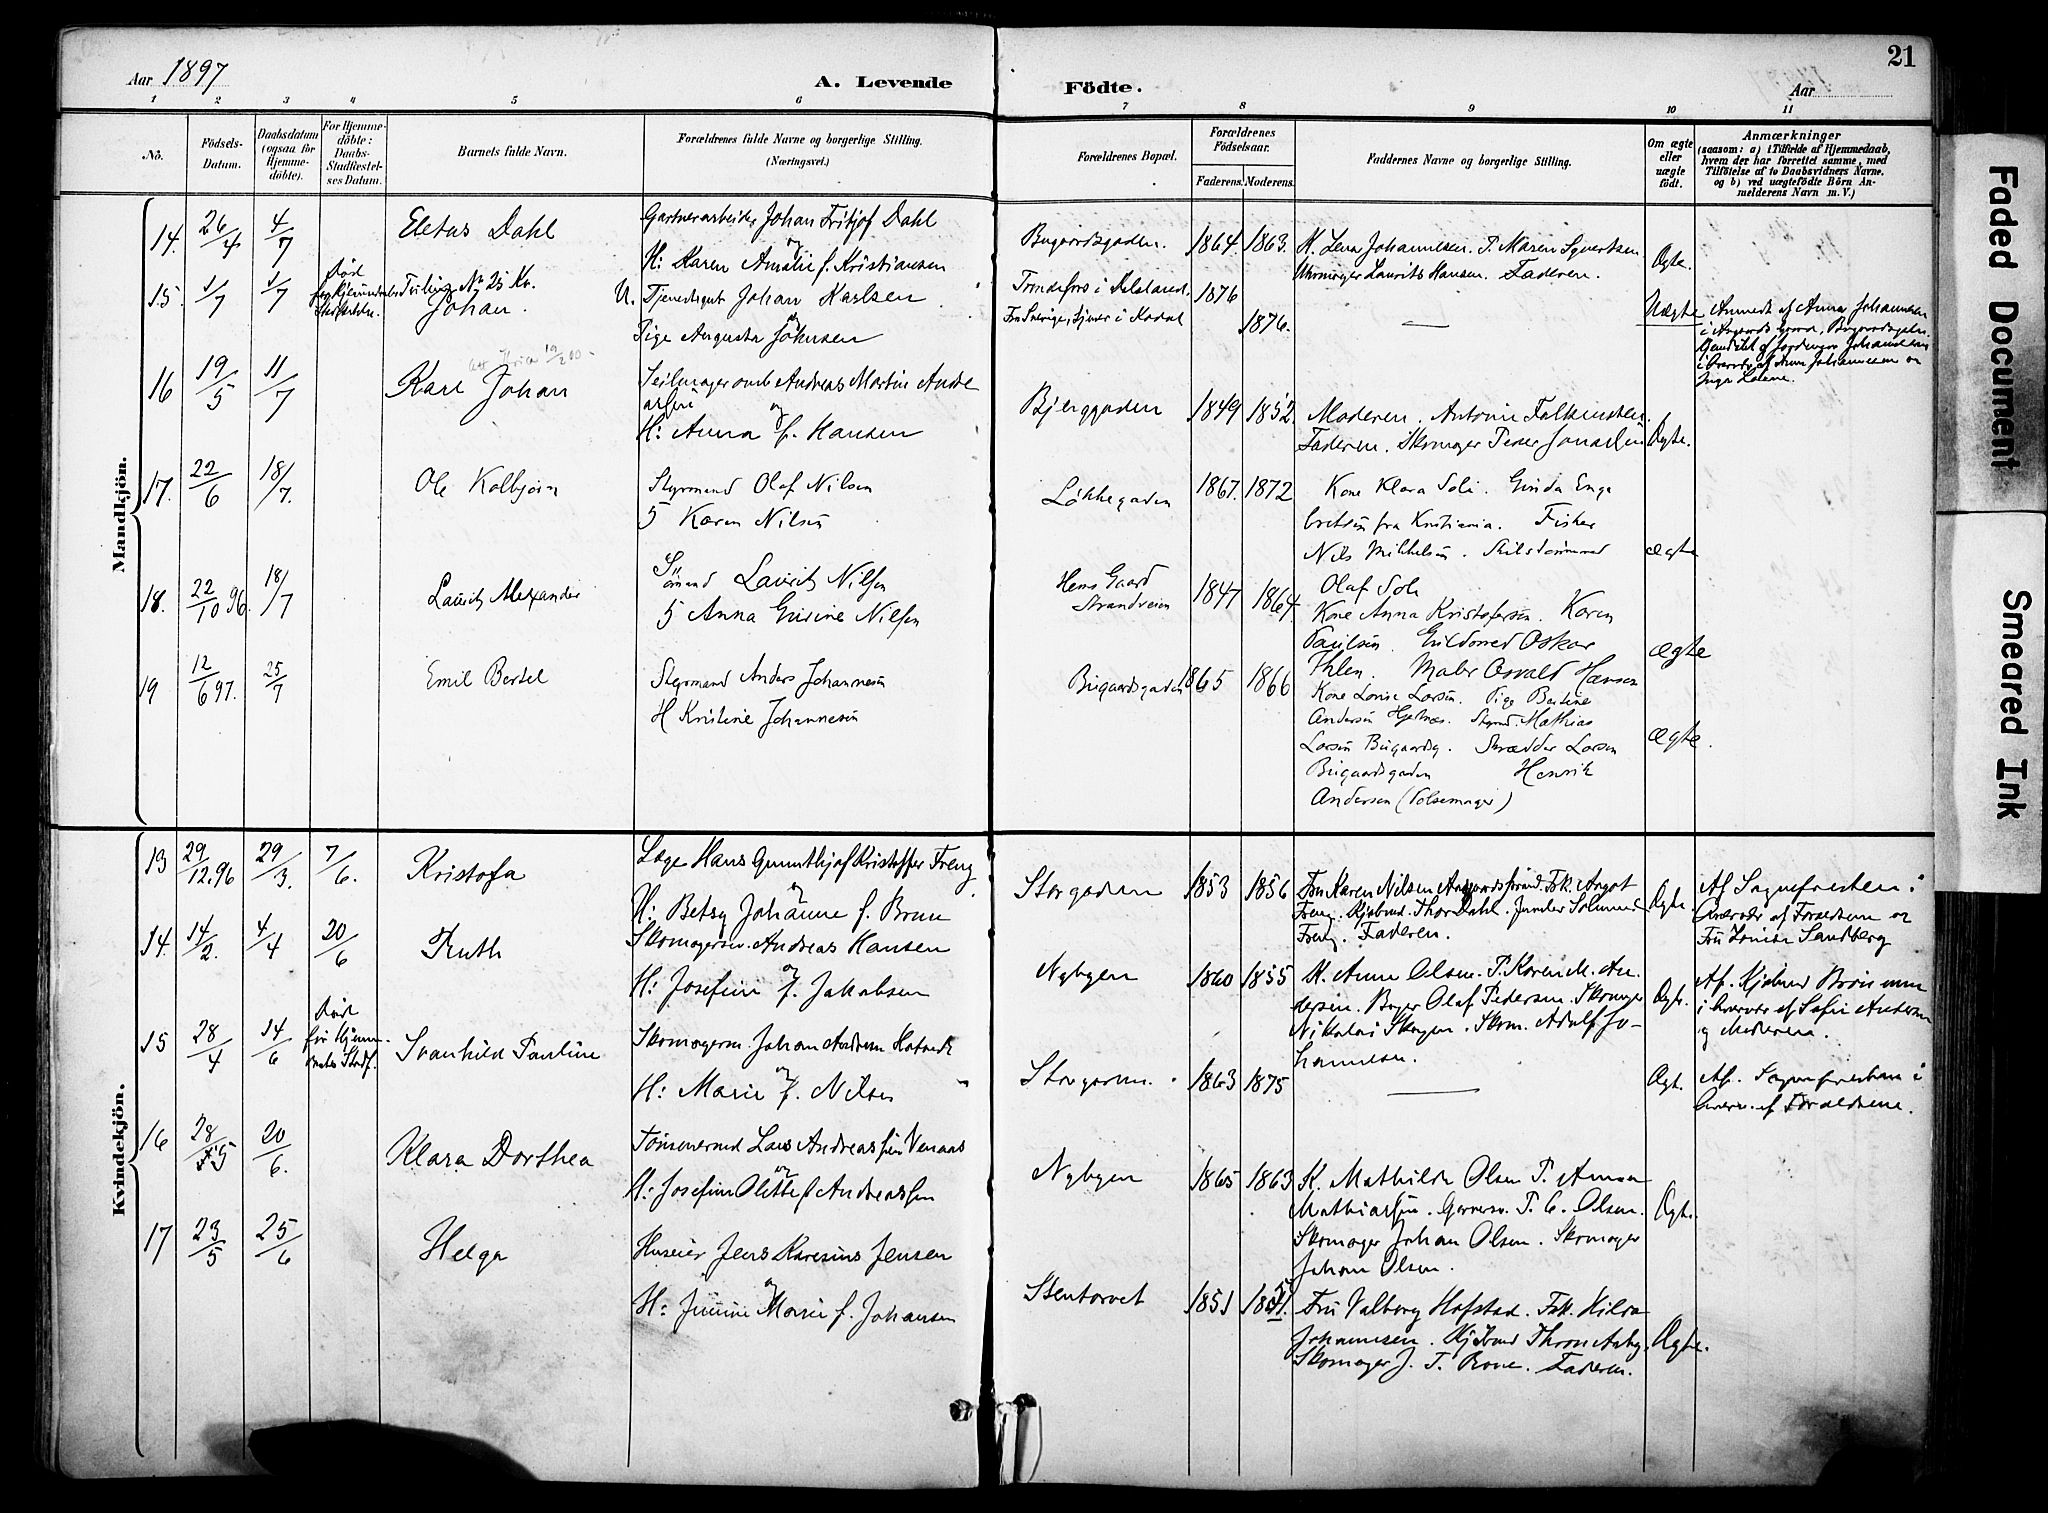 Aar 1897
A. Levende
Födte.
Aar
21
1 2 3 4 5 6 7 8 9 10 11
No.
Födsels-
Datum.
Daabsdatum
(ogsaa for
Hjemme-
döbte).
For Hjemme-
döbte:
Daabs-
Stadfæstel-
ses Datum.
Barnets fulde Navn.
Forældrenes fulde Navne og borgerlige Stilling.
(Næringsvei.)
Forældrenes Bopæl.
Forældrenes
Födselsaar.
Faderens. Moderens.
Faddernes Navne og borgerlige Stilling.
Om ægte
eller
uægte
födt.
Anmærkninger
(saasom: a) i Tilfælde af Hjemmedaab,
hvem der har forrettet samme, med
Tilföielse af to Daabsvidners Navne,
og b) ved uægtefödte Börn An-
melderens Navn m. V.)
Mandkjön.
14. 26/4 4/7
Dahl
Gartnerarbeider Johan Fritjof Dahl
og
H: Karen Amalie f. Kristiansen
Bugaardsgaden. 1864. 1863.
K. Lena Johannesen. P. Maren Syvertsen
Skomager Laurits Hansen. Faderen.
Ægte.
15. 1/7 1/7
Død
Tvilling No 25 Kv.
Johan.
U. Tjenestegut Johan Karlsen
og
Pige Augusta Johnsen
1876
1876.
—
Uægte
Anmeldt af Anna Johannesen
16 19/5 11/7
Karl Johan
Seilmager Andreas Martin Andre
assen
og
H: Anna f. Hansen
Bjerggaden 1849 1852.
Moderen. Antonie Falkensten
Faderen. Skomager Peder Jonassen
Ægte.
17. 22/6 18/7.
Ole Kolbjørn
Styrmand Olaf Nilsen
H Karen Nilsen
Løkkegaden 1867. 1872
Kone Klara Soli. Gunda Enge
bretsen fra Kristiania. Fisker
Nils Mikkelsen. Seilskømmand
Olaf Sole
ægte
18. 22/10 96. 18/7
Laurits Alexander
Sømand Laurits Nilsen
H Anna Gurine Nilsen
Hems Gaard
Strandveien
1847 1864.
Kone Anna Kristofersen. Karen
Paulsen. Guldsmed Oskar
Ihlen. Maler Osvald Hansen
ægte
19 12/6 97. 25/7
Emil Bertel
Styrmand Anders Johannesen
H Kristine Johannesen
Bugaardsgaden 1865 1866
Kone Lovise Larsen. Pige Bertine
Andersen Hjertnæs. Styrmd. Mathias
Larsen Bugaardsg. Skrædder Larsen
Bugaardsgaden Henrik
Andersen (Pølsemager)
ægte.
Kvindekjön.
13 29/12.96 29/3. 7/6.
Kristofa
Læge Hans Kristoffer Freng
og
H: Betsy Johanne f. Brun
Storgaden 1853 1856
Fru Karen Nilsen Aagaardsstrand. Frk. Aagot
Freng. Kjøbmd. Thor Dahl. Junker Solmund
Freng. Faderen.
Ægte.
Af Sognepresten i
Overvær af Forældrene og
Fru Louise Sandberg
14. 14/2. 4/4 20/6
Ruth
Skomagersv. Andreas Hansen
og
H: Josefine f. Jakobsen
Nybyen 1860 1855
K. Anne Olsen. P. Karen M. An-
dersen. Bager Olaf Pedersen. Skomager
Nikolai Skogen. Skom. Adolf Jo-
hannesen.
Ægte.
Af. Kjøbmd Brønnum
i Overvær af Sofie Andersen
og Moderen.
15 28/4 14/6
Død
før Hjemme-
daabs Stadf.
Svanhild Pauline
Skomagersv. Johan
og
H: Marie f. Nilsen
Storgaden. 1863 1875
—
Ægt.
Af. Sognepresten i
Overv. af Forældrene.
16 28/5 20/6.
Klara Dorthea
Tømmermd Lars Andreassen Venaas
og
H: Josefine Olette f. Andreassen
Nybyen 1865 1863
K. Mathilde Olsen P. Anna
Mathiassen. Garversv. P. C. Olsen.
Skomager Johan Olsen. Skomager
Johan Olsen.
Ægte.
17 23/5 25/6
Helga
Huseier Jens Jensen
og
H: Marie f. Johansen
Stentorvet 1851
Fru Valborg Hofstad. Frk. Hilda
Johannesen. Kjøbmd Thron Aaby.
Skomager J. T. Rove. Faderen.
Ægte.
Faded Document
Smeared Ink